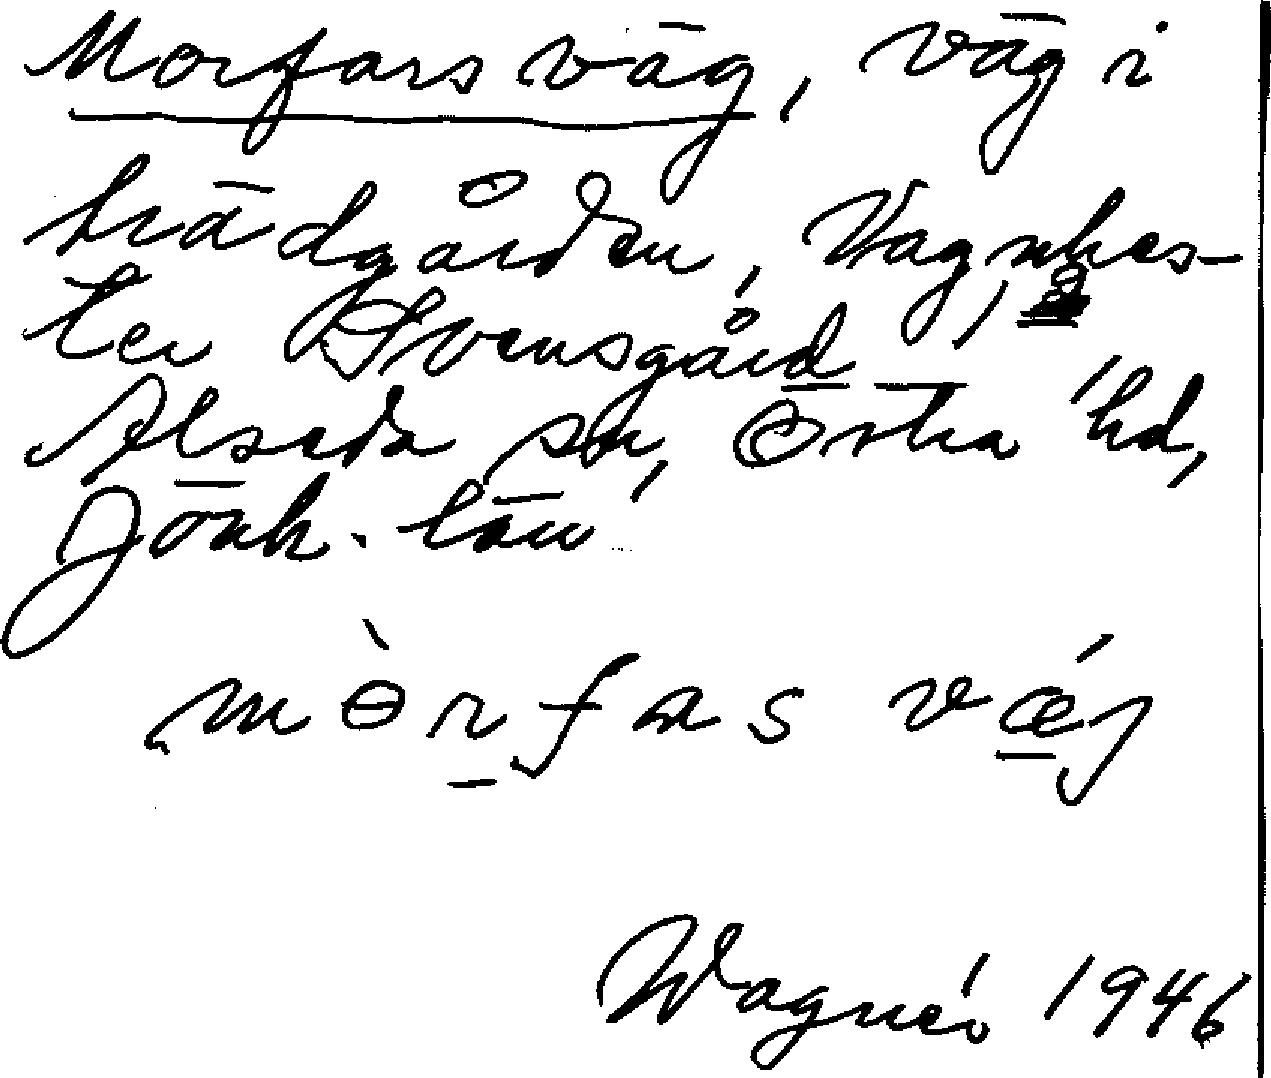 Morfars väg, väg i
trädgården, Vagnhes-
ter Svensgård,
Alseda sn, Östra hd,
Jönk. län
mòrfas vǽj
Wagnér 1946